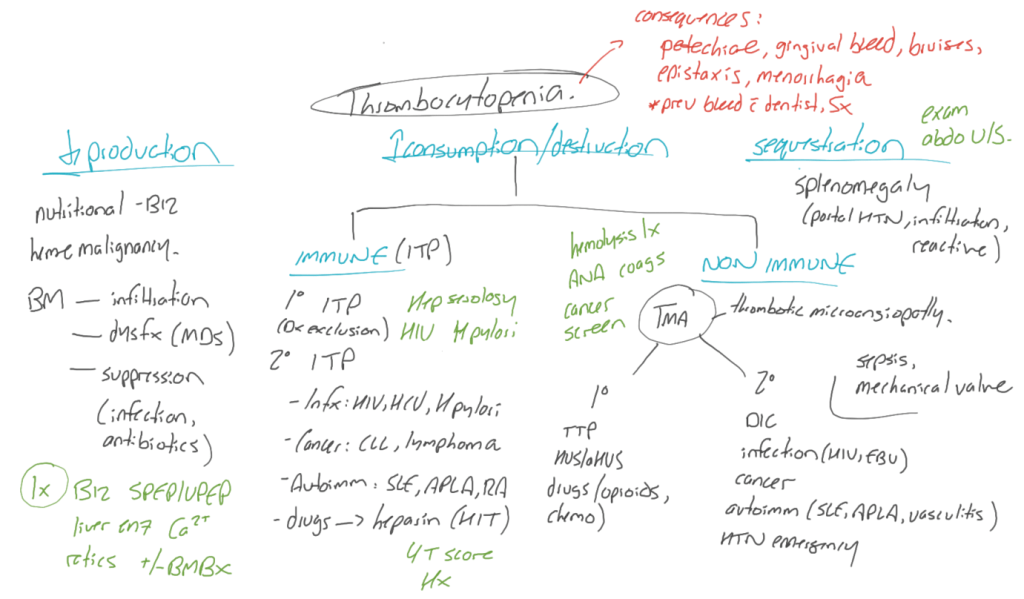 consequences:
petechiae, gingival bleed, bruises,
epistaxis, menorrhagia
*prev bleed c̄ dentist, Sx
Thrombocytopenia.
exam
abdo U/S.
↓ production
nutritional - B12
heme malignancy.
BM — infiltration
— dysfx (MDS)
— suppression
(infection,
antibiotics)
Ix B12 SPEP/UPEP
liver enz Ca²⁺
retics +/- BMBx
↑consumption/destruction
IMMUNE (ITP)
1° ITP
(Dx exclusion)
Hep serology
HIV H pylori
2° ITP
- Infx: HIV, HCV, H pylori
- Cancer: CLL, lymphoma
- Autoimm: SLE, APLA, RA
- drugs → heparin (HIT)
4T score
Hx
hemolysis Ix
ANA coags
cancer
screen
NON IMMUNE
TMA — thrombotic microangiopathy.
1°
TTP
HUS/aHUS
drugs (opioids,
chemo)
2°
DIC
infection (HIV, EBV)
cancer
autoimm (SLE, APLA, vasculitis)
HTN emergency
sepsis,
mechanical valve
sequestration
splenomegaly
(portal HTN, infiltration,
reactive)